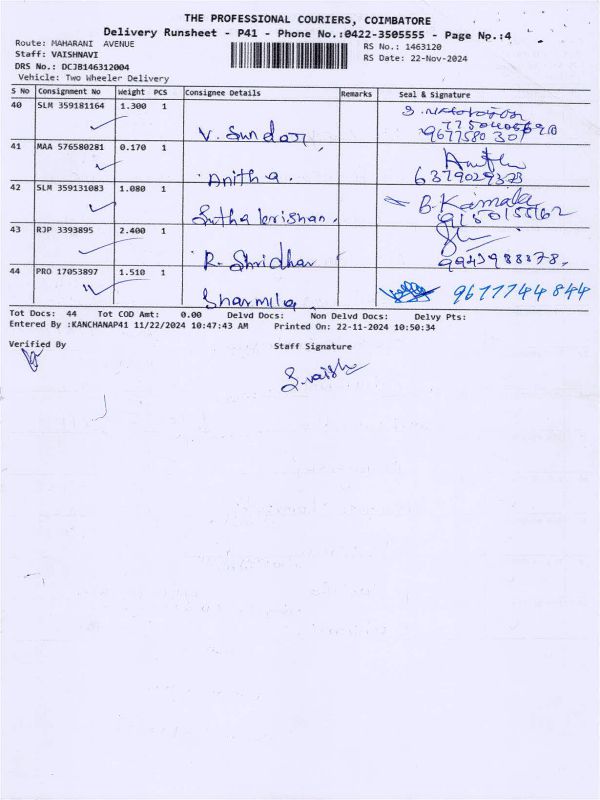 THE PROFESSIONAL COURIERS, COIMBATORE
Delivery Runsheet - P41 - Phone No.:0422-3505555 - Page Np.:4
Route: MAHARANI AVENUE
RS No.: 1463120
Staff: VAISHNAVI
RS Date: 22-Nov-2024
DRS No.: DCJB146312004
Vehicle: Two Wheeler Delivery
S No Consignment No Weight PCS Consignee Details Remarks Seal & Signature
40 SLM 359181164 1.300 1 V. Sundar
41 MAA 576580281 0.170 1 Anitha. 6379029323
42 SLM 359131083 1.080 1 B. Kamala
43 RJP 3393895 2.400 1 R. Shridhar
44 PRO 17053897 1.510 1 Sharmila 9677744844
Tot Docs: 44 Tot COD Amt: 0.00 Delvd Docs: Non Delvd Docs: Delvy Pts:
Entered By :KANCHANAP41 11/22/2024 10:47:43 AM Printed On: 22-11-2024 10:50:34
Verified By Staff Signature
S.vaish